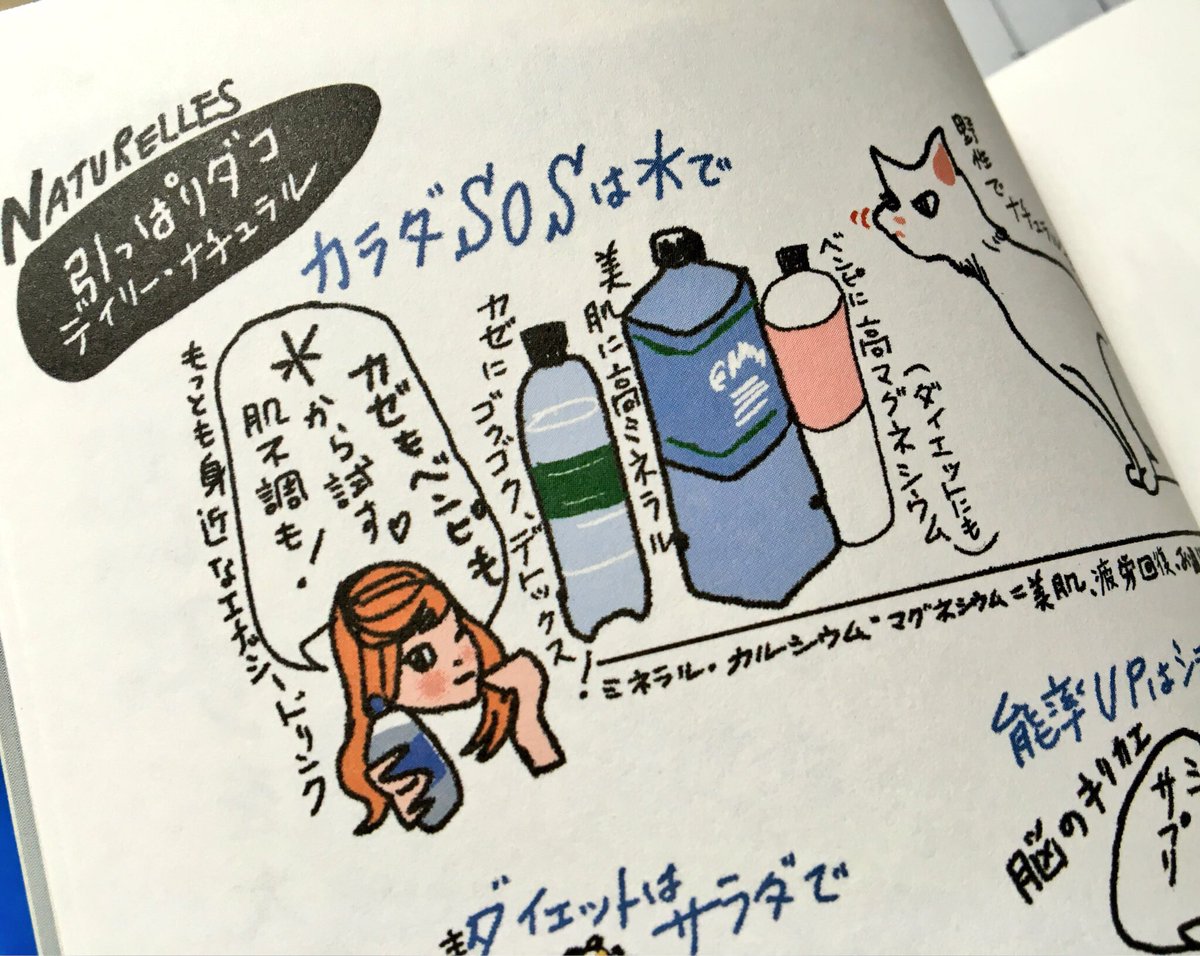 NATURELLES
引っぱりダコ
デイリー・ナチュラル
カラダSOSは水で
野性でナチュラル
カゼもベンピも
水から試す♡
肌不調も!
もっとも身近なエナジードリンク
カゼにゴクゴク、デトックス!
美肌に高ミネラル
ベンピに高マグネシウム
(ダイエットにも)
ミネラル・カルシウム・マグネシウム=美肌、疲労回復、
能率UPは
脳のキリカエ
サプリ
ダイエットは
サラダで